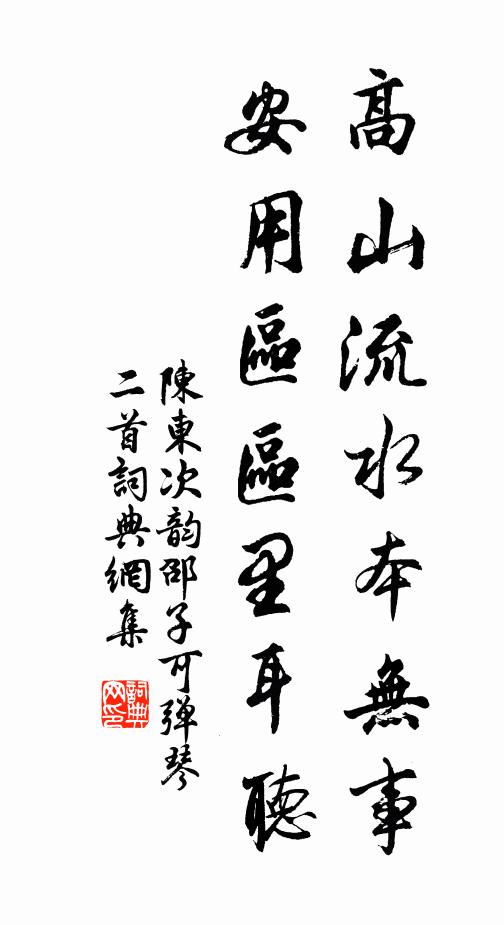 高山流水本無事
安用區區里耳聽
陳東次韵邵子可弹琴
二首詞典網集
詞典
网印